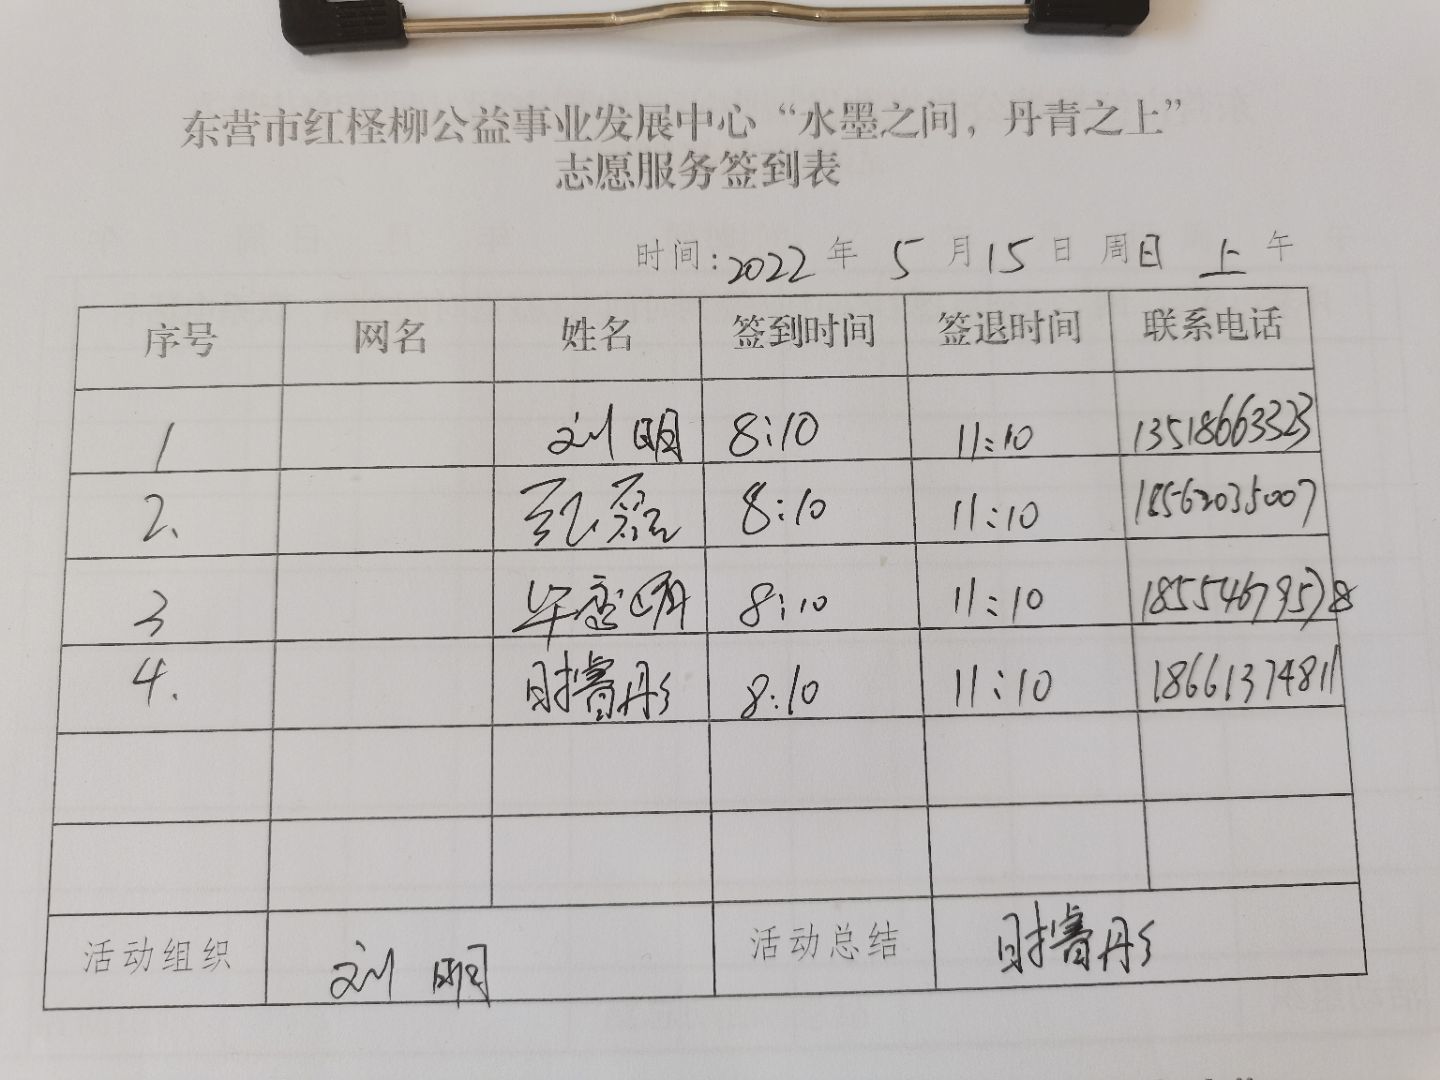 东营市红柽柳公益事业发展中心“水墨之间，丹青之上”
志愿服务签到表
时间:2022年 5月15日 周日 上午
序号 网名 姓名 签到时间 签退时间 联系电话
1 刘明 8:10 11:10 13518663323
2. 8:10 11:10 18562035007
3 8:10 11:10 18554679578
4. 时睿彤 8:10 11:10 18661374811
活动组织 刘明 活动总结 时睿彤